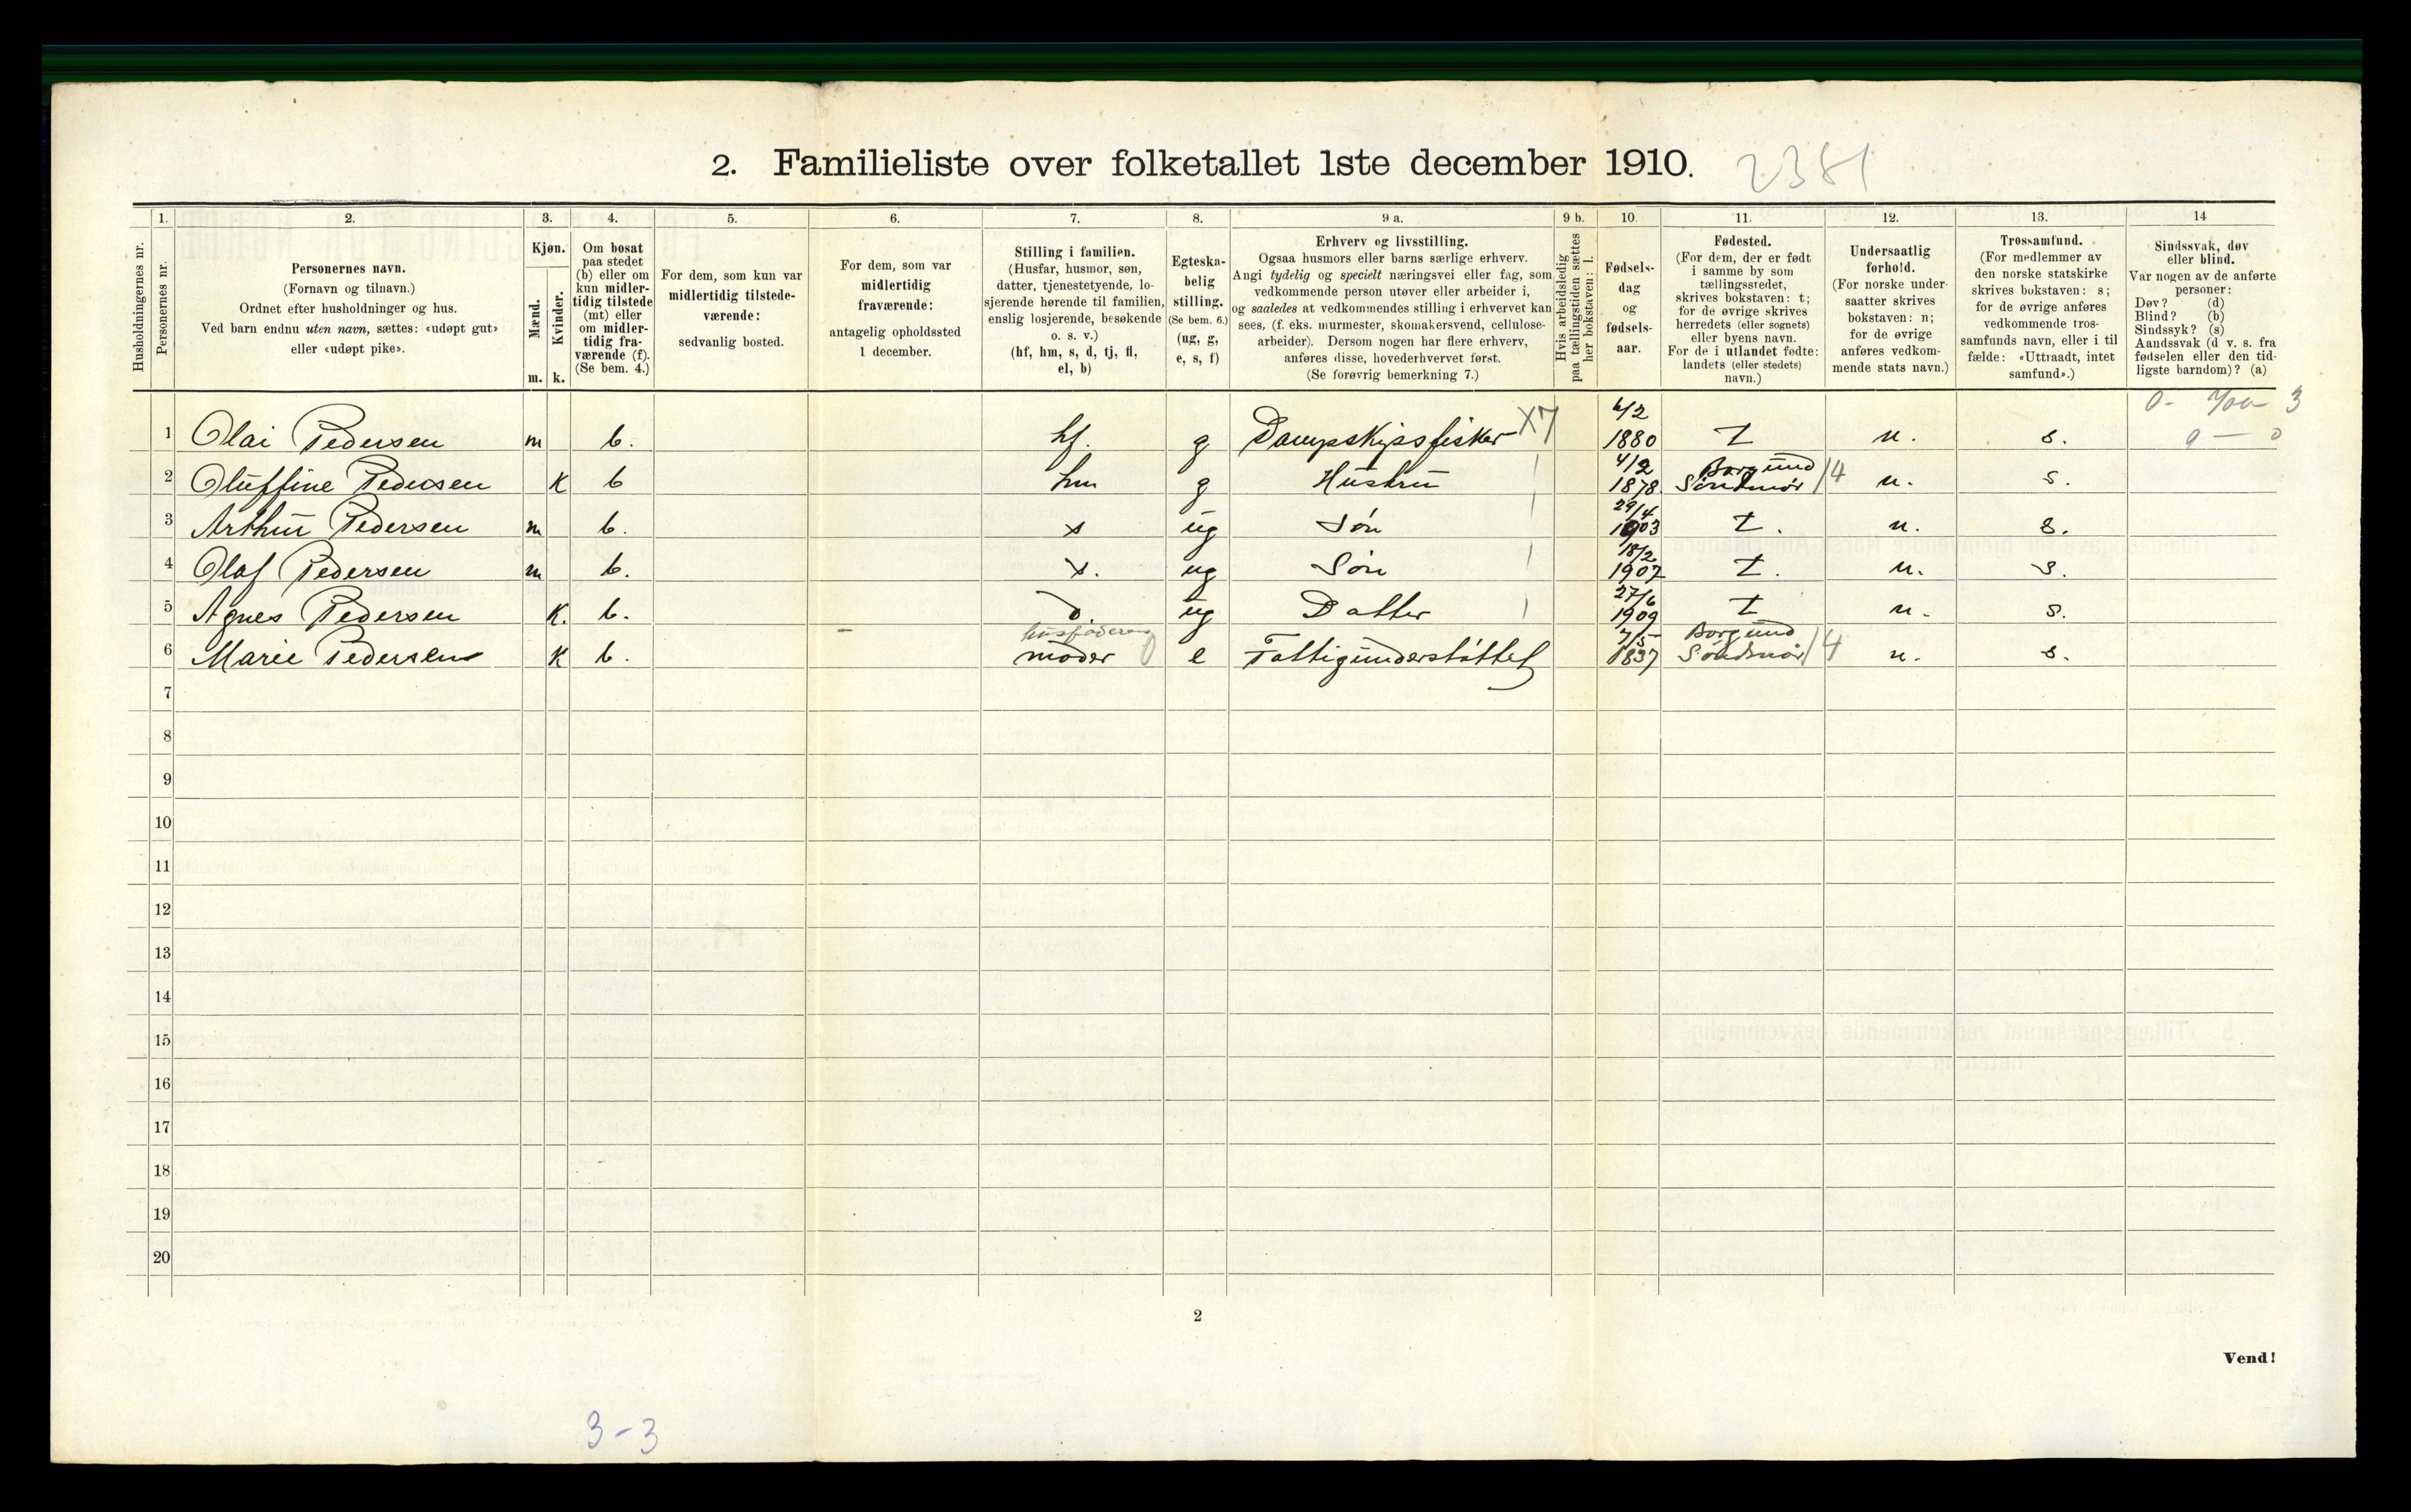 2. Familieliste over folketallet 1ste december 1910. 2381
1. 2. 3. 4. 5. 6. 7. 8. 9 a. 9 b. 10. 11. 12. 13. 14
Husholdningernes nr.
Personernes nr.
Personernes navn.
(Fornavn og tilnavn.)
Ordnet efter husholdninger og hus.
Ved barn endnu uten navn, sættes: «udøpt gut»
eller «udøpt pike».
Kjøn.
Mænd.
Kvinder.
m. k.
Om bosat
paa stedet
(b) eller om
kun midler-
tidig tilstede
(mt) eller
om midler-
tidig fra-
værende (f).
(Se bem. 4.)
For dem, som kun var
midlertidig tilstede-
værende:
sedvanlig bosted.
For dem, som var
midlertidig
fraværende:
antagelig opholdssted
1 december.
Stilling i familien.
(Husfar, husmor, søn,
datter, tjenestetyende, lo-
sjerende hørende til familien,
enslig losjerende, besøkende
o. s. v.)
(hf, hm, s, d, tj, fl,
el, b)
Egteska-
belig
stilling.
(Se bem. 6.)
(ug, g,
e, s, f)
Erhverv og livsstilling.
Ogsaa husmors eller barns særlige erhverv.
Angi tydelig og specielt næringsvei eller fag, som
vedkommende person utøver eller arbeider i,
og saaledes at vedkommendes stilling i erhvervet kan
sees, (f. eks. murmester, skomakersvend, cellulose-
arbeider). Dersom nogen har flere erhverv,
anføres disse, hovederhvervet først.
(Se forøvrig bemerkning 7.)
Hvis arbeidsledig
paa tællingstiden sættes
her bokstaven: l.
Fødsels-
dag
og
fødsels-
aar.
Fødested.
(For dem, der er født
i samme by som
tællingsstedet,
skrives bokstaven: t;
for de øvrige skrives
herredets (eller sognets)
eller byens navn.
For de i utlandet fødte:
landets (eller stedets)
navn.)
Undersaatlig
forhold.
(For norske under-
saatter skrives
bokstaven: n;
for de øvrige
anføres vedkom-
mende stats navn.)
Trossamfund.
(For medlemmer av
den norske statskirke
skrives bokstaven: s;
for de øvrige anføres
vedkommende tros-
samfunds navn, eller i til
fælde: «Uttraadt, intet
samfund».)
Sindssvak, døv
eller blind.
Var nogen av de anførte
personer:
Døv? (d)
Blind? (b)
Sindssyk? (s)
Aandssvak (d v. s. fra
fødselen eller den tid-
ligste barndom)? (a)
1 Olai Pedersen m b. hf. g Dampskipsfisker X7 6/2 1880 t n. s.
2 Oluffine Pedersen K b hm g Hustru 4/2 1878 Borgund Søndmør 14 n. s.
3 Arthur Pedersen m b. s ug Søn 29/4 1903 t. n. s.
4 Olaf Pedersen m b. s. ug Søn 18/2 1907 t. n. s.
5 Agnes Pedersen K. b. d. ug Datter 27/6 1909 t n. s.
6 Marie Pedersen K b. husfaderens moder 0 e Fattigunderstøttet 7/5 1837 Borgund Søndmør 14 n. s.
7
8
9
10
11
12
13
14
15
16
17
18
19
20
2
Vend!
3-3